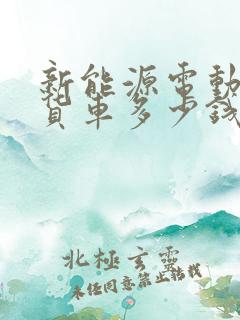 新能源電動
貨車多少錢
北極玄靈
未经同意禁止转载